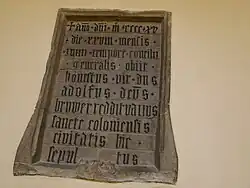 + anno · dni · m · cccc · xv
die · xxviii · mensis ·
tempore · concilii
generalis · obiit ·
honestus · vir · dns
adolfus · dcus ·
bruwer · redditualius
sancte · coloniensis
civitatis · hic ·
sepul tus